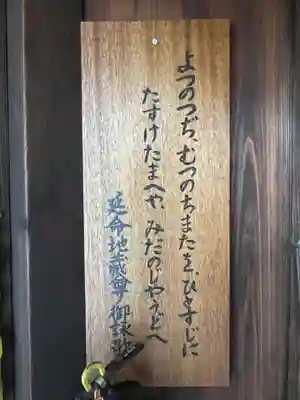 よつのつぢ、むつのちまたを、ひとすじに
たすけたまへや、みだのじやうどへ
延命地蔵尊御詠歌